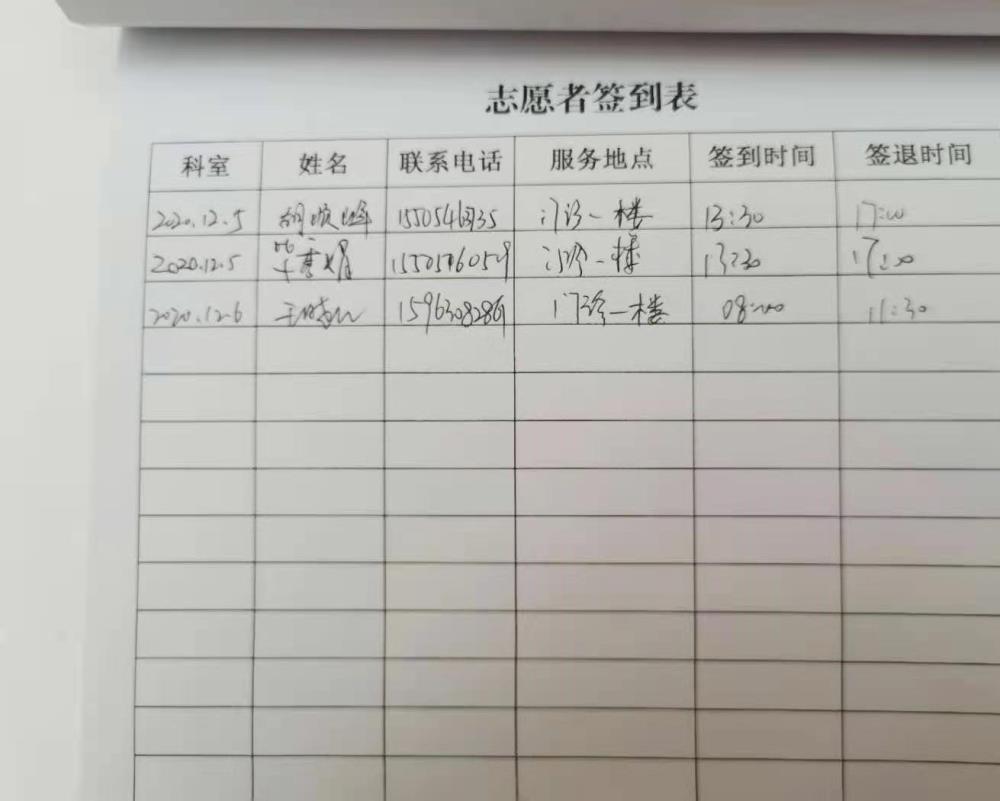 志愿者签到表
科室 姓名 联系电话 服务地点 签到时间 签退时间
2020.12.5 门诊一楼 13:30 17:00
2020.12.5 门诊一楼 13:30 17:00
2020.12.6 15963082861 门诊一楼 08:00 11:30